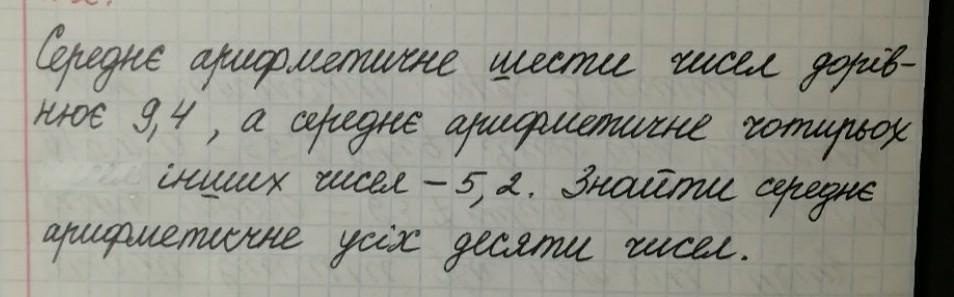 Середнє арифметичне шести чисел дорів-
нює 9,4, а середнє арифметичне чотирьох
інших чисел – 5,2. Знайти середнє
арифметичне усіх десяти чисел.